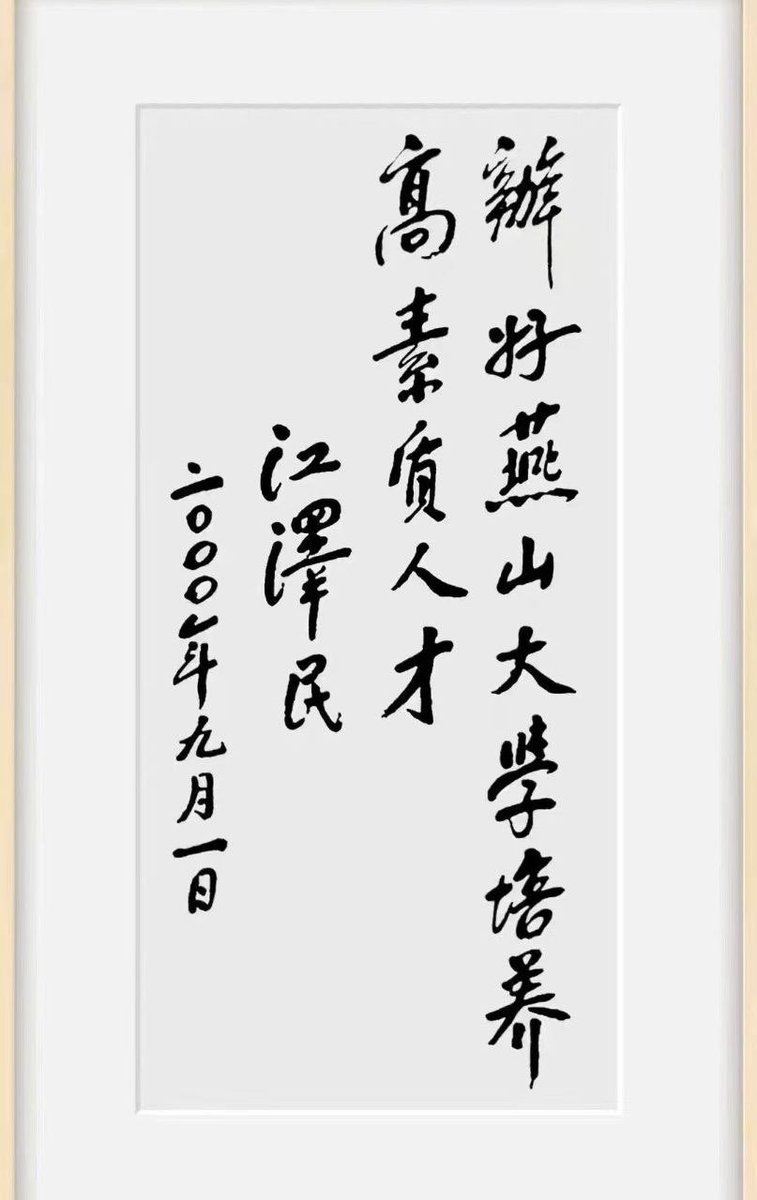 辦好燕山大学培养
高素质人才
江澤民
二〇〇〇年九月一日